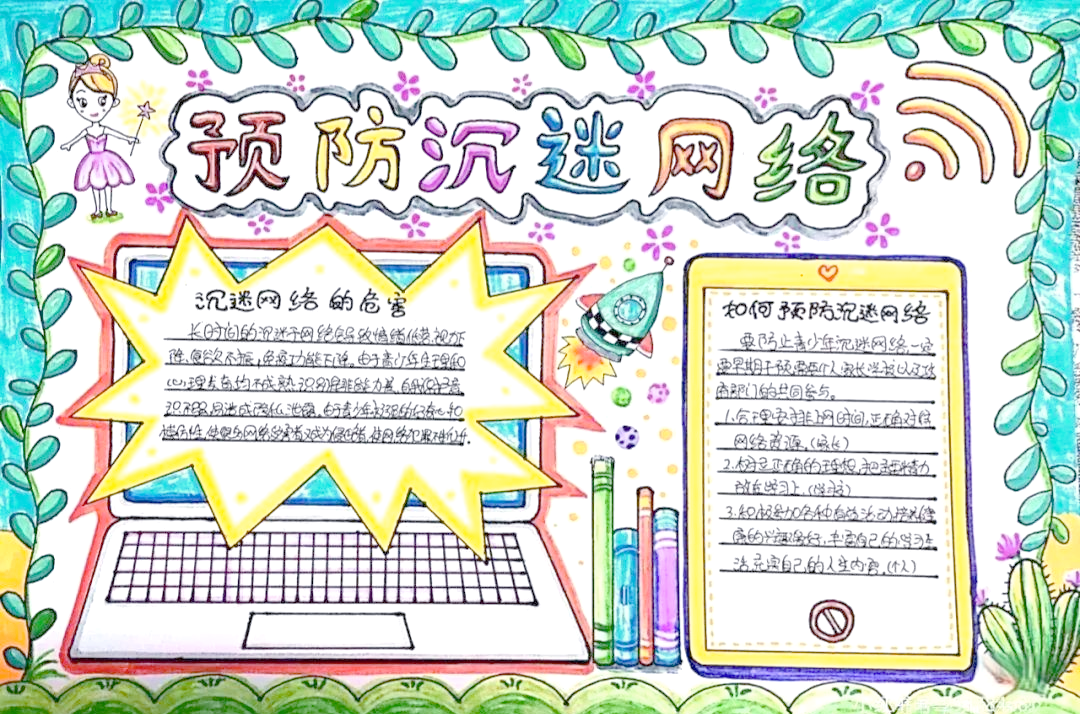 预防沉迷网络
沉迷网络的危害
长时间的沉迷于网络会导致情绪低落,视力下
降,食欲不振,免疫功能下降。由于青少年生理和
心理发育尚不成熟,识别是非能力差,自我保护意
识不强,易造成隐私泄露。
如何预防沉迷网络
要防止青少年沉迷网络,一定
要早期干预,需要个人,家长学校以及政
府部门的共同参与。
1.合理安排上网时间,正确对待
网络资源。(家长)
2.树立正确的理想,把主要精力
放在学习上。(学校)
3.积极参加各种有益活动,培养健
康的兴趣爱好,丰富自己的学习生
活,充实自己的人生内容。(个人)